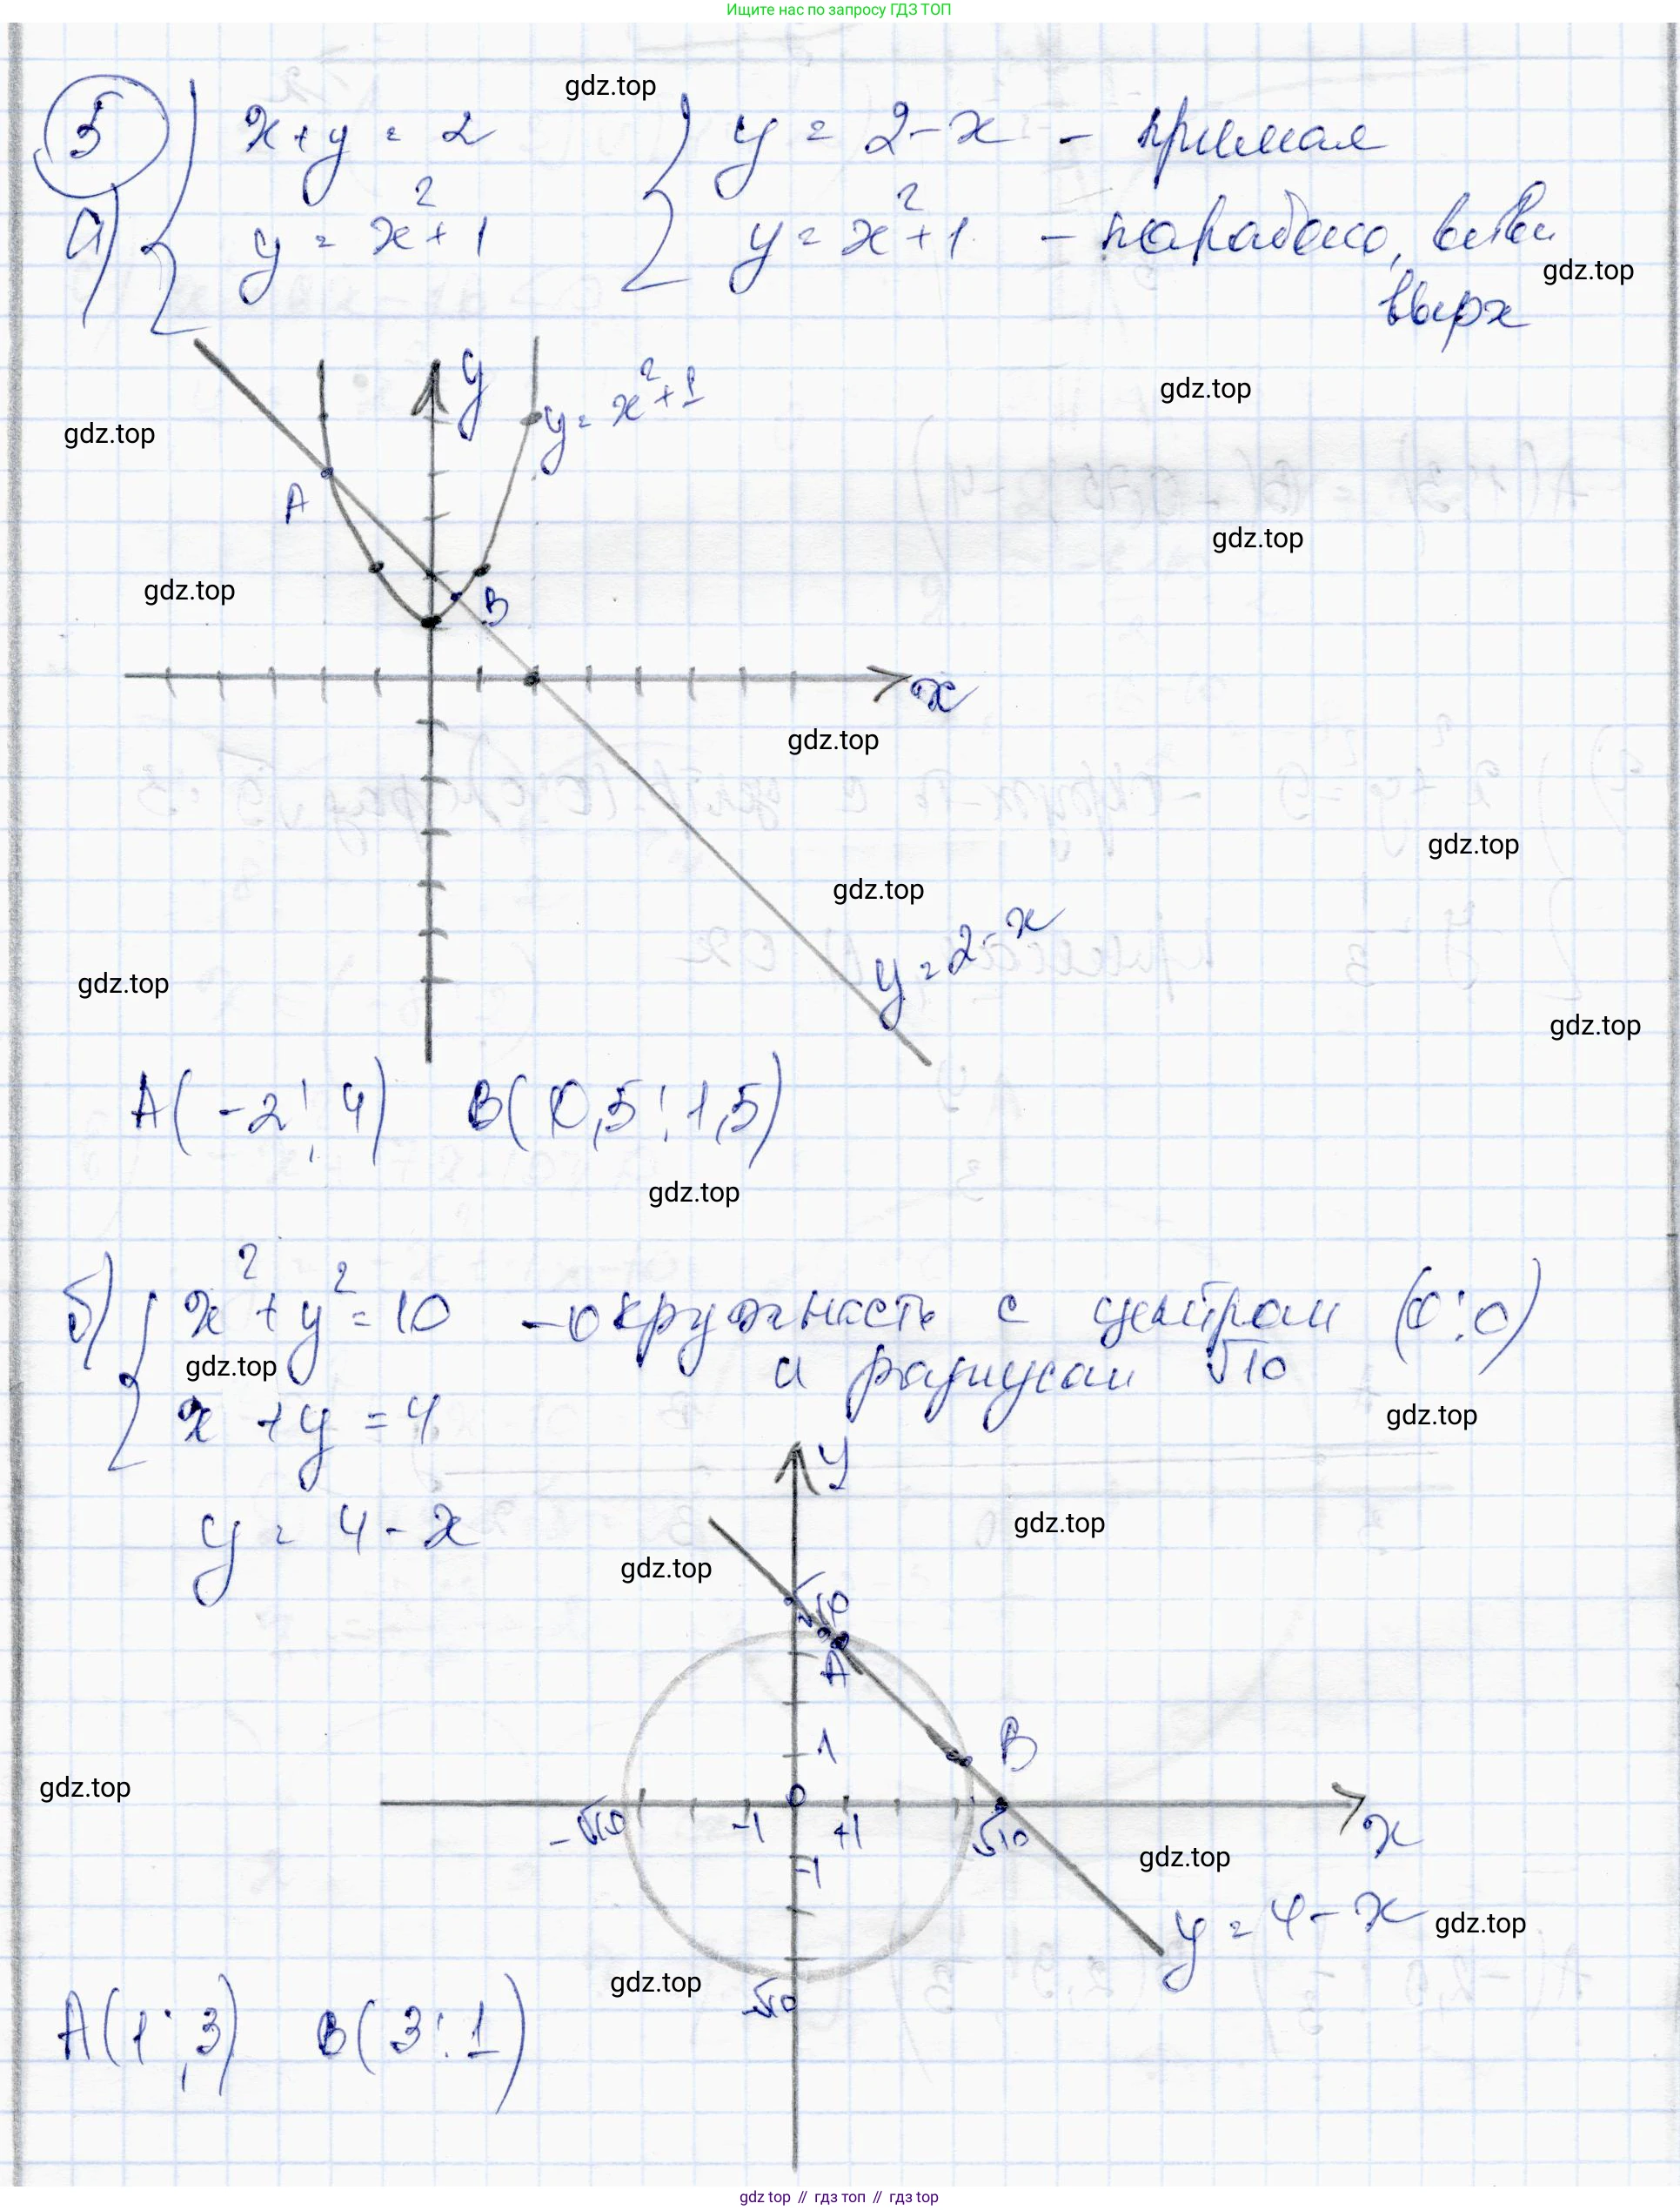 Ищите нас по запросу ГДЗ ТОП
5
gdz.top
а) { x+y = 2 { y = 2-x - прямая
y = x²+1 y = x²+1 - парабола, ветви
вверх
gdz.top
y
y = x²+1
gdz.top
gdz.top
A
gdz.top
gdz.top
B
x
gdz.top
gdz.top
gdz.top
y = 2-x
gdz.top
gdz.top
A(-2; 4) B(0,5; 1,5)
gdz.top
б) { x² + y² = 10 - окружность с центром (0;0)
и радиусом √10
gdz.top
x + y = 4
gdz.top
y
y = 4 - x
gdz.top
gdz.top
√10
A
1
B
gdz.top
0
-√10 -1 +1 √10
x
-1
gdz.top
y = 4 - x
gdz.top
gdz.top
-√10
A(1; 3) B(3; 1)
gdz.top // гдз топ // гдз top